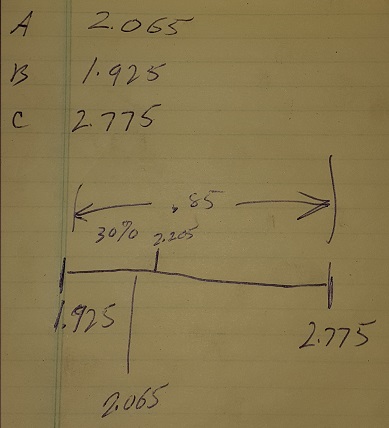 A 2.065
B 1.925
C 2.775
.85
30% 2.205
1.925
2.775
2.065